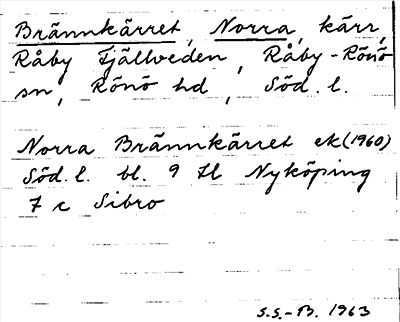 Brännkärret, Norra, kärr,
Råby Fjällveden, Råby-Rönö
sn, Rönö hd, Söd. l.
Norra Brännkärret ek (1960)
Söd. l. bl. 9 Il Nyköping
7 c Sibro
S.S.-B. 1963